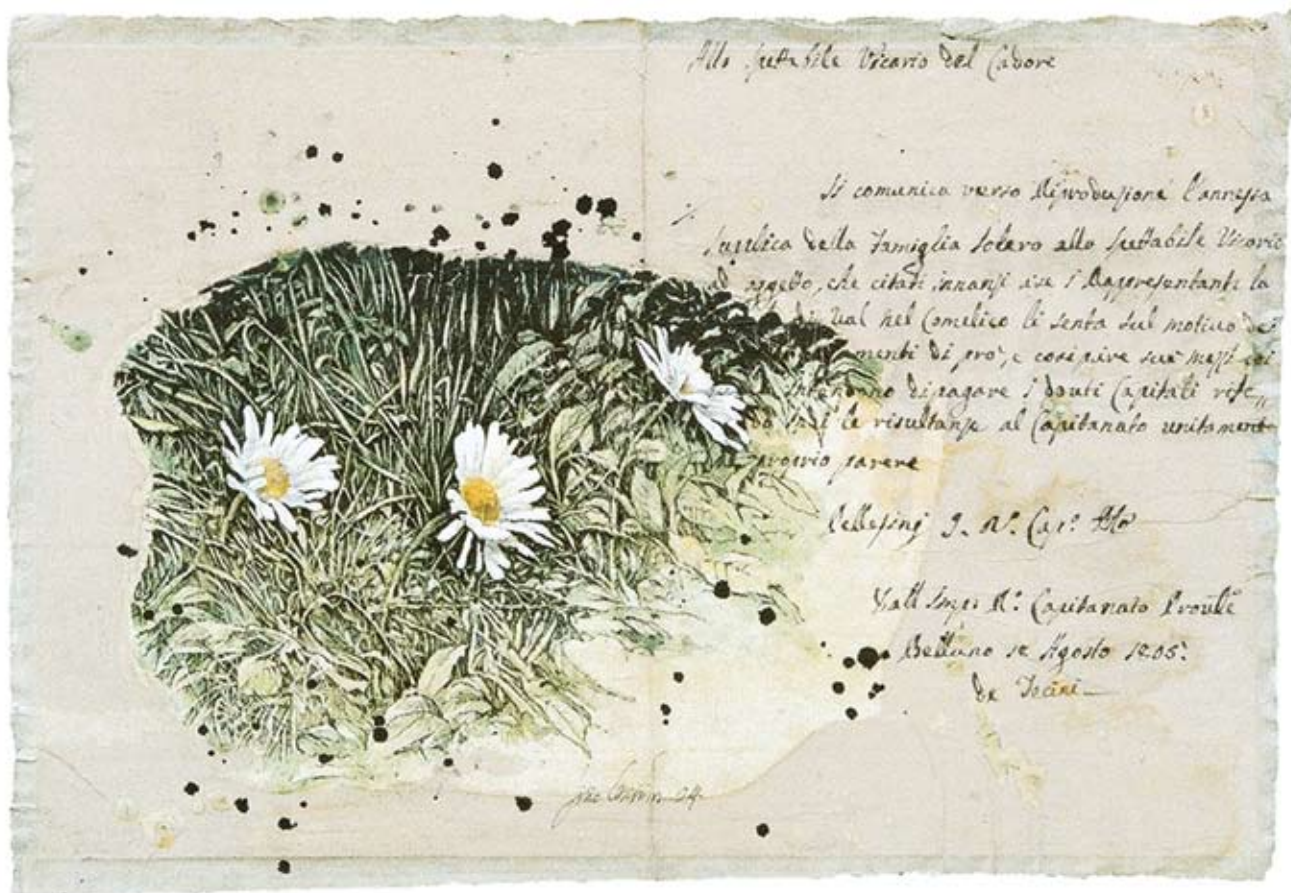 Allo spettabile Vicario del Cadore
Si comunica verso Riproduzione l'annessa
Supplica della Famiglia Solero allo spettabile Vicario
oggetto, che citati innanzi a se i Rappresentanti la
di Val nel Comelico li senta sul motivo dei
menti di prò, e così pure sui mezzi coi
intendono di pagare i dovuti Capitali rife„
le risultanze al Capitanato unitamente
proprio parere
Dall' Imp: R.º Capitanato Provle
Belluno 12 Agosto 1805: